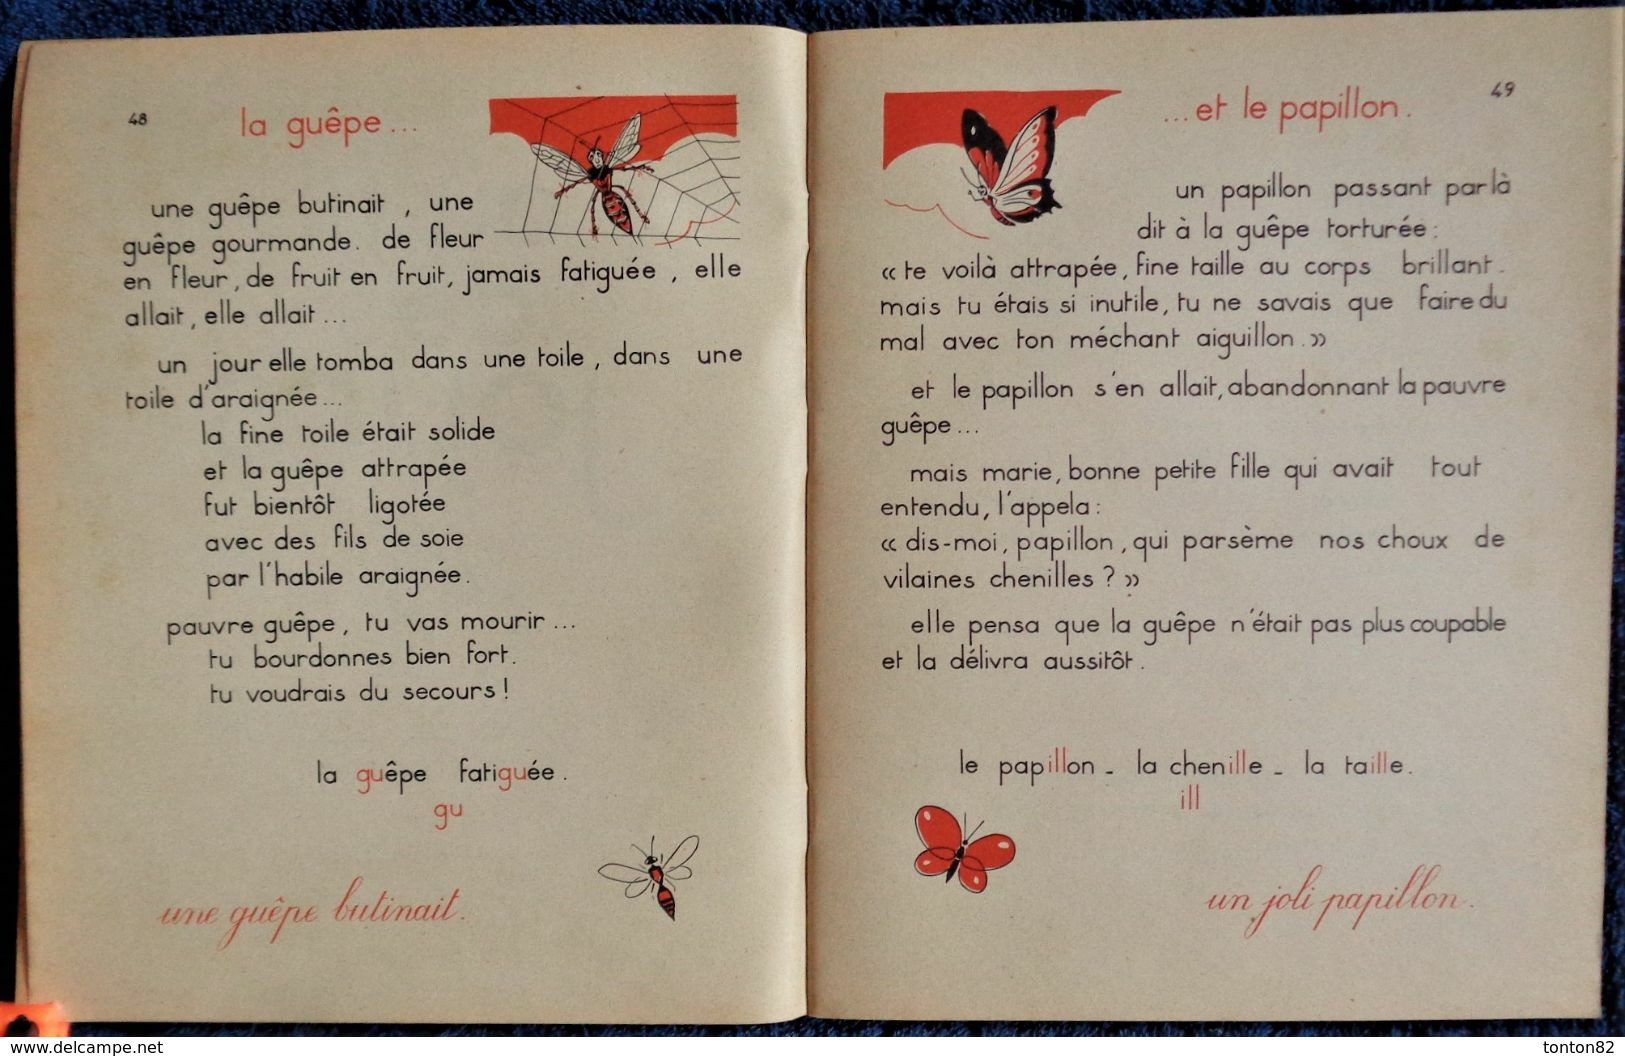 48
la guêpe...
une guêpe butinait, une
guêpe gourmande. de fleur
en fleur, de fruit en fruit, jamais fatiguée, elle
allait, elle allait...
un jour elle tomba dans une toile, dans une
toile d'araignée...
la fine toile était solide
et la guêpe attrapée
fut bientôt ligotée
avec des fils de soie
par l'habile araignée.
pauvre guêpe, tu vas mourir...
tu bourdonnes bien fort.
tu voudrais du secours!
la guêpe fatiguée.
gu
une guêpe butinait.
49
...et le papillon.
un papillon passant par là
dit à la guêpe torturée:
«te voilà attrapée, fine taille au corps brillant.
mais tu étais si inutile, tu ne savais que faire du
mal avec ton méchant aiguillon.»
et le papillon s'en allait, abandonnant la pauvre
guêpe...
mais marie, bonne petite fille qui avait tout
entendu, l'appela:
«dis-moi, papillon, qui parsème nos choux de
vilaines chenilles?»
elle pensa que la guêpe n'était pas plus coupable
et la délivra aussitôt.
le papillon - la chenille - la taille.
ill
un joli papillon.
https://www.delcampe.net
tonton82